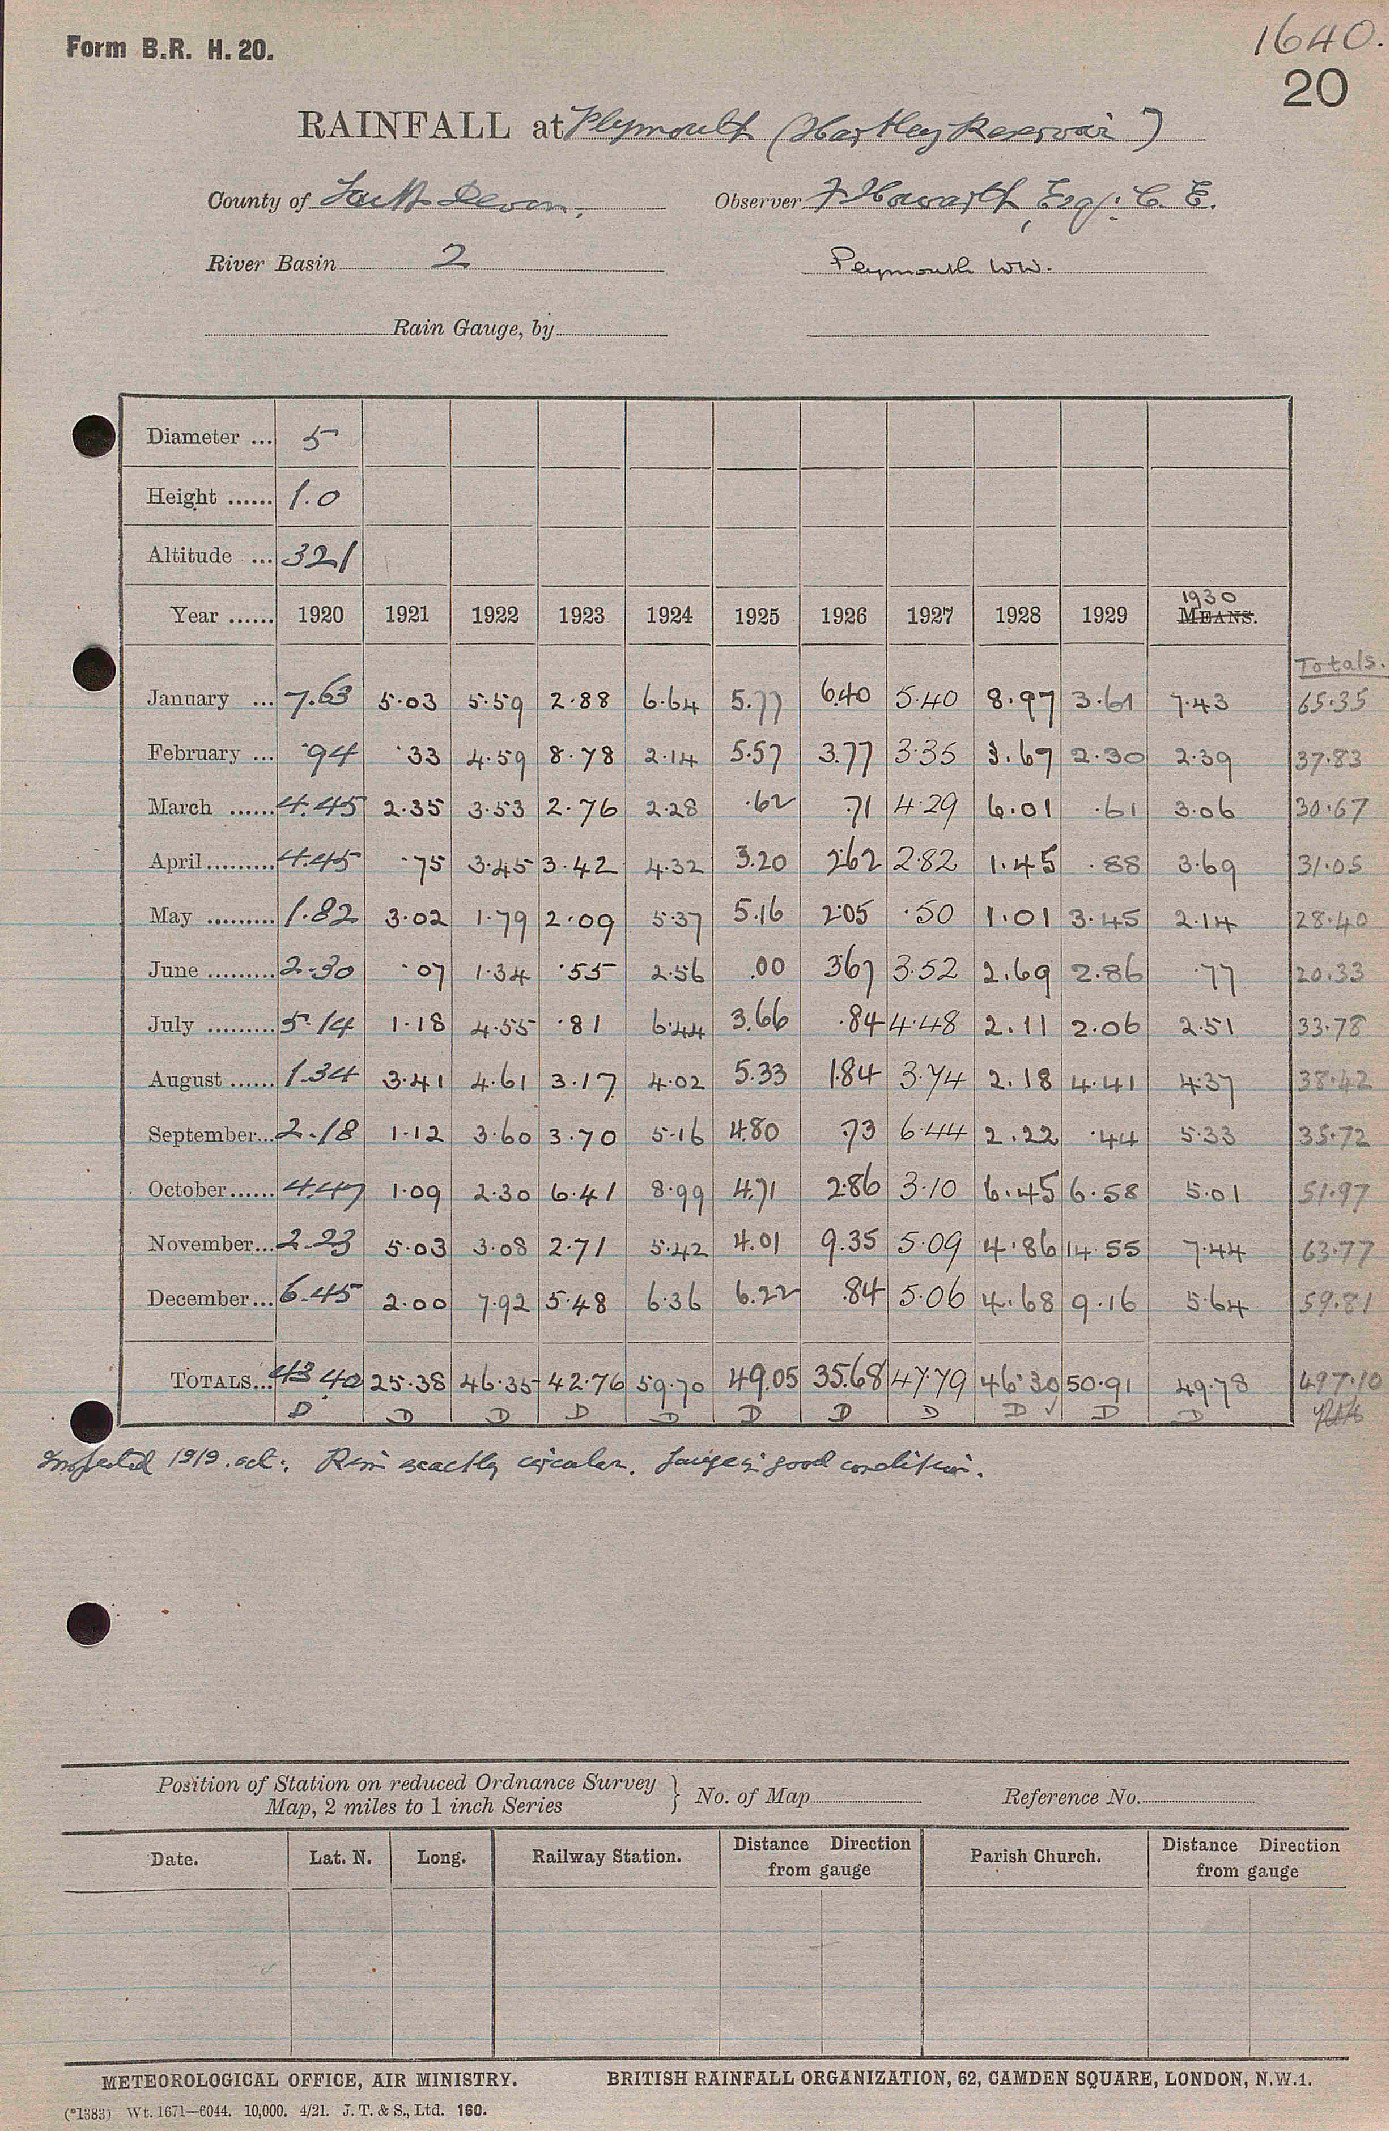 Form B.R. H. 20.
1640.
20
RAINFALL at Plymouth (Hartley Reservoir)
County of South Devon. Observer F Howarth, Esq. C. E.
River Basin 2 Plymouth WW.
Rain Gauge, by
Diameter ... 5
Height ...... 1.0
Altitude ... 321
1930
Year ...... 1920 1921 1922 1923 1924 1925 1926 1927 1928 1929 MEANS.
Totals.
January ... 7.63 5.03 5.59 2.88 6.64 5.77 6.40 5.40 8.97 3.61 7.43 65.35
February ... .94 .33 4.59 8.78 2.14 5.57 3.77 3.35 3.67 2.30 2.39 37.83
March ...... 4.45 2.35 3.53 2.76 2.28 .62 .71 4.29 6.01 .61 3.06 30.67
April......... 4.45 .75 3.45 3.42 4.32 3.20 2.62 2.82 1.45 .88 3.69 31.05
May ......... 1.82 3.02 1.79 2.09 5.37 5.16 2.05 .50 1.01 3.45 2.14 28.40
June ......... 2.30 .07 1.34 .55 2.56 .00 3.67 3.52 2.69 2.86 .77 20.33
July ......... 5.14 1.18 4.55 .81 6.44 3.66 .84 4.48 2.11 2.06 2.51 33.78
August ...... 1.34 3.41 4.61 3.17 4.02 5.33 1.84 3.74 2.18 4.41 4.37 38.42
September... 2.18 1.12 3.60 3.70 5.16 4.80 .73 6.44 2.22 .44 5.33 35.72
October...... 4.47 1.09 2.30 6.41 8.99 4.71 2.86 3.10 6.45 6.58 5.01 51.97
November... 2.23 5.03 3.08 2.71 5.42 4.01 9.35 5.09 4.86 14.55 7.44 63.77
December... 6.45 2.00 7.92 5.48 6.36 6.22 .84 5.06 4.68 9.16 5.64 59.81
TOTALS... 43.40 25.38 46.35 42.76 59.70 49.05 35.68 47.79 46.30 50.91 49.78 497.10
D D D D D D D D D ✓ D D
Inspected 1919. oct. Rim exactly circular. Gauge in good condition.
Position of Station on reduced Ordnance Survey
Map, 2 miles to 1 inch Series } No. of Map Reference No.
Date. Lat. N. Long. Railway Station. Distance Direction from gauge Parish Church. Distance Direction from gauge
METEOROLOGICAL OFFICE, AIR MINISTRY. BRITISH RAINFALL ORGANIZATION, 62, CAMDEN SQUARE, LONDON, N.W.1.
(*1383) Wt. 1671—6044. 10,000. 4/21. J. T. & S., Ltd. 160.